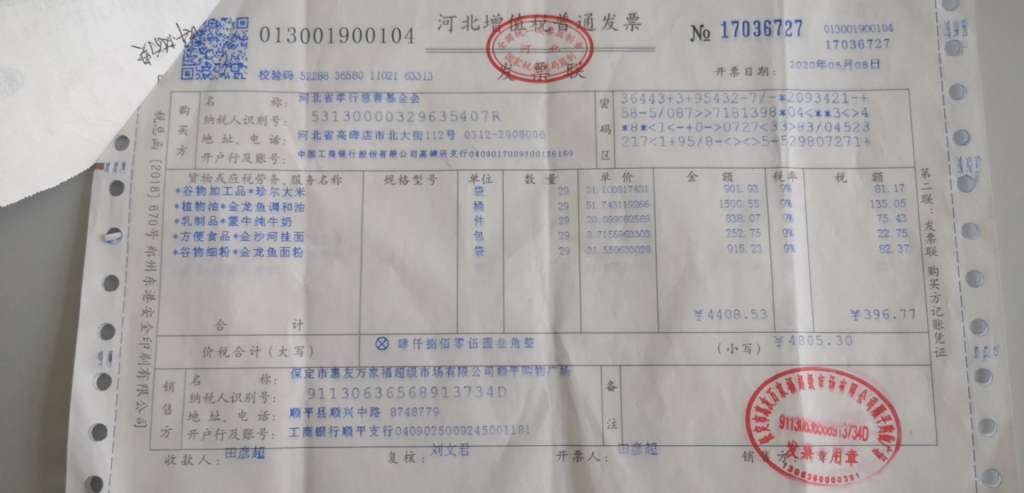 013001900104
河北增值税普通发票
发票联
№ 17036727
013001900104
17036727
校验码 52288 36580 11021 63313
开票日期: 2020年05月08日
购买方
名称: 河北省孝行慈善基金会
纳税人识别号: 53130000329635407R
地址、电话: 河北省高碑店市北大街112号 0312-2908006
开户行及账号: 中国工商银行股份有限公司高碑店支行
密码区
36443+3+95432-7/-*2093421-+
58-5/087>>7181398*04<**3<>4
*8*<1<-+0->0727<33>83/04523
217<1+95/8-<><>5-529807271+
货物或应税劳务、服务名称 规格型号 单位 数量 单价 金额 税率 税额
*谷物加工品*珍尔大米 袋 29 901.93 9% 81.17
*植物油*金龙鱼调和油 桶 29 51.743119266 1500.55 9% 135.05
*乳制品*蒙牛纯牛奶 件 29 838.07 9% 75.43
*方便食品*金沙河挂面 包 29 252.75 9% 22.75
*谷物细粉*金龙鱼面粉 袋 29 915.23 9% 82.37
合计 ¥4408.53 ¥396.77
价税合计(大写) ⊗ 肆仟捌佰零伍圆叁角整 (小写) ¥4805.30
销售方
名称: 保定市惠友万家福超级市场有限公司顺平购物广场
纳税人识别号: 91130636568913734D
地址、电话: 顺平县顺兴中路 8748779
开户行及账号: 工商银行顺平支行0409025009245001181
备注
收款人: 田彦超 复核: 刘文君 开票人: 田彦超 销售方:
91130636568913734D
发票专用章
第二联:发票联 购买方记账凭证
税总函〔2018〕670号 郑州东港安全印刷有限公司